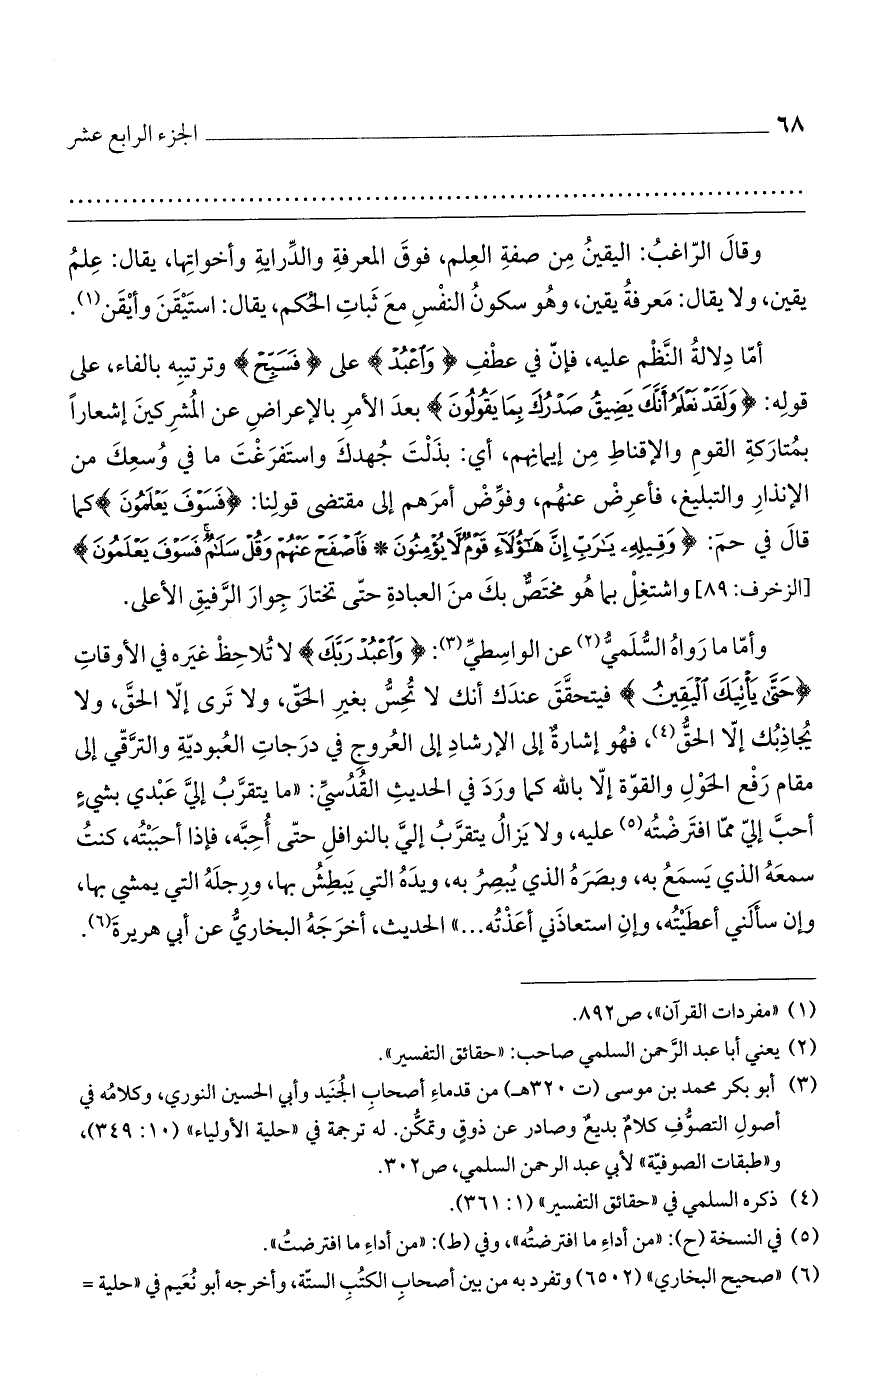 ٦٨ ــــــــــــــــــــ الجزء الرابع عشر
................................................................................
وقالَ الرّاغبُ: اليقينُ مِن صفةِ العِلم، فوقَ المعرفةِ والدِّرايةِ وأخواتِها، يقال: عِلمُ
يقين، ولا يقال: مَعرفةُ يقين، وهُو سكونُ النفْسِ معَ ثَباتِ الحُكم، يقال: استَيْقَنَ وأيْقَن(١).
أمّا دِلالةُ النَّظْمِ عليه، فإنّ في عطْفِ ﴿وَٱعْبُدْ﴾ على ﴿فَسَبِّحْ﴾ وترتيبِه بالفاء، على
قولِه: ﴿وَلَقَدْ نَعْلَمُ أَنَّكَ يَضِيقُ صَدْرُكَ بِمَا يَقُولُونَ﴾ بعدَ الأمرِ بالإعراضِ عن المُشركينَ إشعاراً
بمُتارَكةِ القومِ والإقناطِ مِن إيمانِهم، أي: بذَلْتَ جُهدكَ واستَفرَغْتَ ما في وُسعِكَ من
الإنذارِ والتبليغ، فأعرِضْ عنهُم، وفوِّضْ أمرَهم إلى مقتضى قولِنا: ﴿فَسَوْفَ يَعْلَمُونَ﴾ كما
قالَ في حمَ: ﴿وَقِيلِهِۦ يَٰرَبِّ إِنَّ هَٰٓؤُلَآءِ قَوْمٌ لَّا يُؤْمِنُونَ * فَٱصْفَحْ عَنْهُمْ وَقُلْ سَلَٰمٌ ۚ فَسَوْفَ يَعْلَمُونَ﴾
[الزخرف: ٨٩] واشتغِلْ بما هُو مختَصٌّ بكَ منَ العبادةِ حتّى تختارَ جِوارَ الرَّفيقِ الأعلى.
وأمّا ما رَواهُ السُّلَميُّ(٢) عن الواسِطيِّ(٣): ﴿وَٱعْبُدْ رَبَّكَ﴾ لا تُلاحِظْ غيَره في الأوقاتِ
﴿حَتَّىٰ يَأْتِيَكَ ٱلْيَقِينُ﴾ فيتحقَّقَ عندَك أنك لا تُحِسُّ بغيرِ الحَقّ، ولا تَرى إلّا الحَقَّ، ولا
يُجاذِبُك إلّا الحقُّ(٤)، فهُو إشارةٌ إلى الإرشادِ إلى العُروجِ في درَجاتِ العُبوديّةِ والترَّقّي إلى
مقام رَفْعِ الحَوْلِ والقوّة إلّا بالله كما ورَدَ في الحديثِ القُدُسيِّ: «ما يتقرَّبُ إليَّ عَبْدي بشيءٍ
أحبَّ إليّ ممّا افتَرضْتُه(٥) عليه، ولا يَزالُ يتقرَّبُ إليَّ بالنوافلِ حتّى أُحِبَّه، فإذا أحبَبْتُه، كنتُ
سمعَهُ الذي يَسمَعُ به، وبصَرَهُ الذي يُبصِرُ به، ويدَهُ التي يَبطِشُ بها، ورِجلَهُ التي يمشي بها،
وإن سألَني أعطَيْتُه، وإنِ استعاذَني أعَذْتُه...» الحديث، أخرَجَهُ البخاريُّ عن أبي هريرةَ(٦).
(١) «مفردات القرآن»، ص٨٩٢.
(٢) يعني أبا عبد الرَّحمن السلمي صاحب: «حقائق التفسير».
(٣) أبو بكر محمد بن موسى (ت ٣٢٠هـ) من قدماءِ أصحابِ الجُنَيد وأبي الحسين النوري، وكلامُه في
أصولِ التصوُّفِ كلامٌ بديعٌ وصادر عن ذوقٍ وتمكُّن. له ترجمة في «حلية الأولياء» (١٠: ٣٤٩)،
و«طبقات الصوفيّة» لأبي عبد الرحمن السلمي، ص٣٠٢.
(٤) ذكره السلمي في «حقائق التفسير» (١: ٣٦١).
(٥) في النسخة (ح): «من أداءِ ما افترضتُه»، وفي (ط): «من أداءِ ما افترضتُ».
(٦) «صحيح البخاري» (٦٥٠٢) وتفرد به من بين أصحابِ الكتُبِ الستّة، وأخرجه أبو نُعَيم في «حلية =